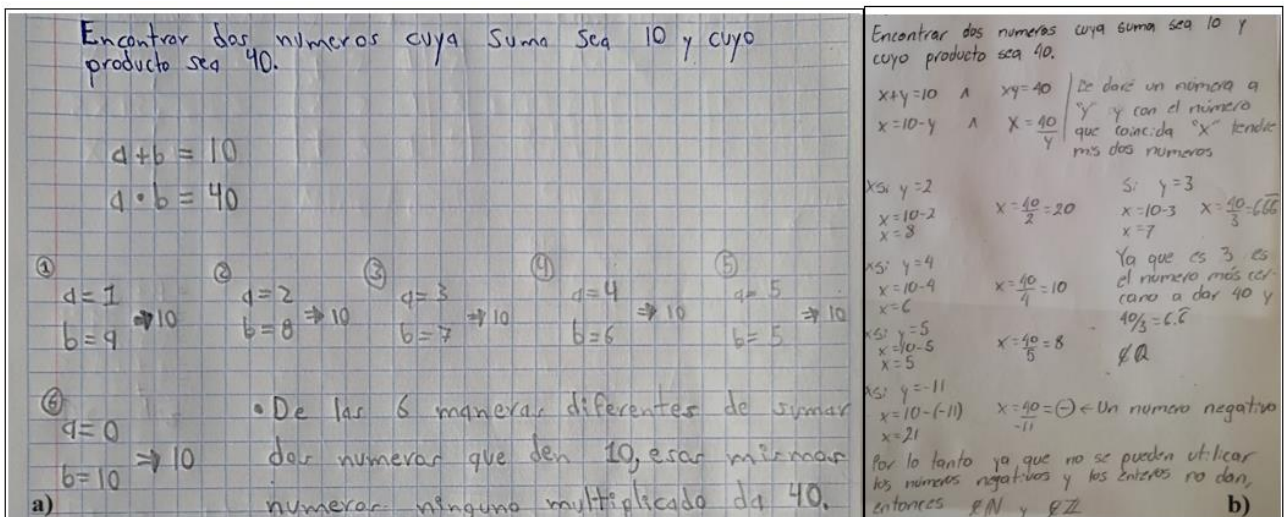 Encontrar dos numeros cuya suma sea 10 y cuyo
producto sea 40.
a+b = 10
a•b = 40
① ② ③ ④ ⑤
a=1 a=2 a=3 a=4 a=5
⇒10 ⇒10 ⇒10 ⇒10 ⇒10
b=9 b=8 b=7 b=6 b=5
⑥
a=0
⇒10
b=10
• De las 6 maneras diferentes de sumar
dos numeros que den 10, esas mismas
numeros ninguno multiplicado da 40.
a)
Encontrar dos numeros cuya suma sea 10 y
cuyo producto sea 40.
x+y=10 ∧ xy=40
x=10-y ∧ x=40/y
Le daré un número a
"y" y con el número
que coincida "x" tendre
mis dos numeros
xSi y=2
x=10-2 x=40/2=20
x=8
Si y=3
x=10-3 x=40/3=6.66
x=7
Ya que es 3 es
el numero más cer-
cano a dar 40 y
40/3=6.6
∉Q
xSi y=4
x=10-4 x=40/4=10
x=6
xSi y=5
x=10-5 x=40/5=8
x=5
xSi y=-11
x=10-(-11) x=40/-11=(-) ← Un numero negativo
x=21
Por lo tanto ya que no se pueden utilizar
los números negativos y los enteros no dan,
entonces ∉N y ∉Z
b)